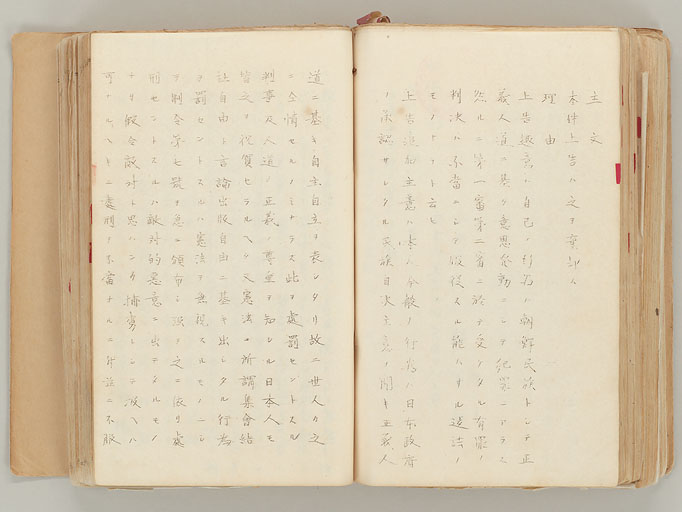 主文
本件上告ハ之ヲ棄却ス
理由
上告趣意ハ自己ノ行為ハ朝鮮民族トシテ正
義人道ニ基ク意思発動ニシテ犯罪ニアラス
然ルニ第一審第二審ニ於テ受ケタル有罪ノ
判決ハ不当ニシテ服従スル能ハサル違法ノ
モノナリト云ヒ
上告追加主意ハ本人今般ノ行為ハ日本政府
ノ承認サレタル民族自決主意ノ聞キ正義人
道ニ基キ自主自立ヲ表シタリ故ニ世人カ之
ニ全情セルノミナラス此ヲ處罰セントスル
判事及人道ノ正義ノ尊重ヲ知レル日本人モ
皆之ヲ祝賀セラルヘク又憲法ノ所謂集會結
社自由ト言論出版自由ニ基キ出シタル行為
ヲ罰セントスルハ憲法ヲ無視スルモノニシ
テ制令第七號ヲ急ニ頒布シ强テ之ニ依リ處
刑セントスルハ敵対的悪意ニ出テタルモノ
ナリ假令敵対ト思ハシク情勢トシテ
可ナルヘキニ處刑ヲ不當ナルニ付茲ニ不服